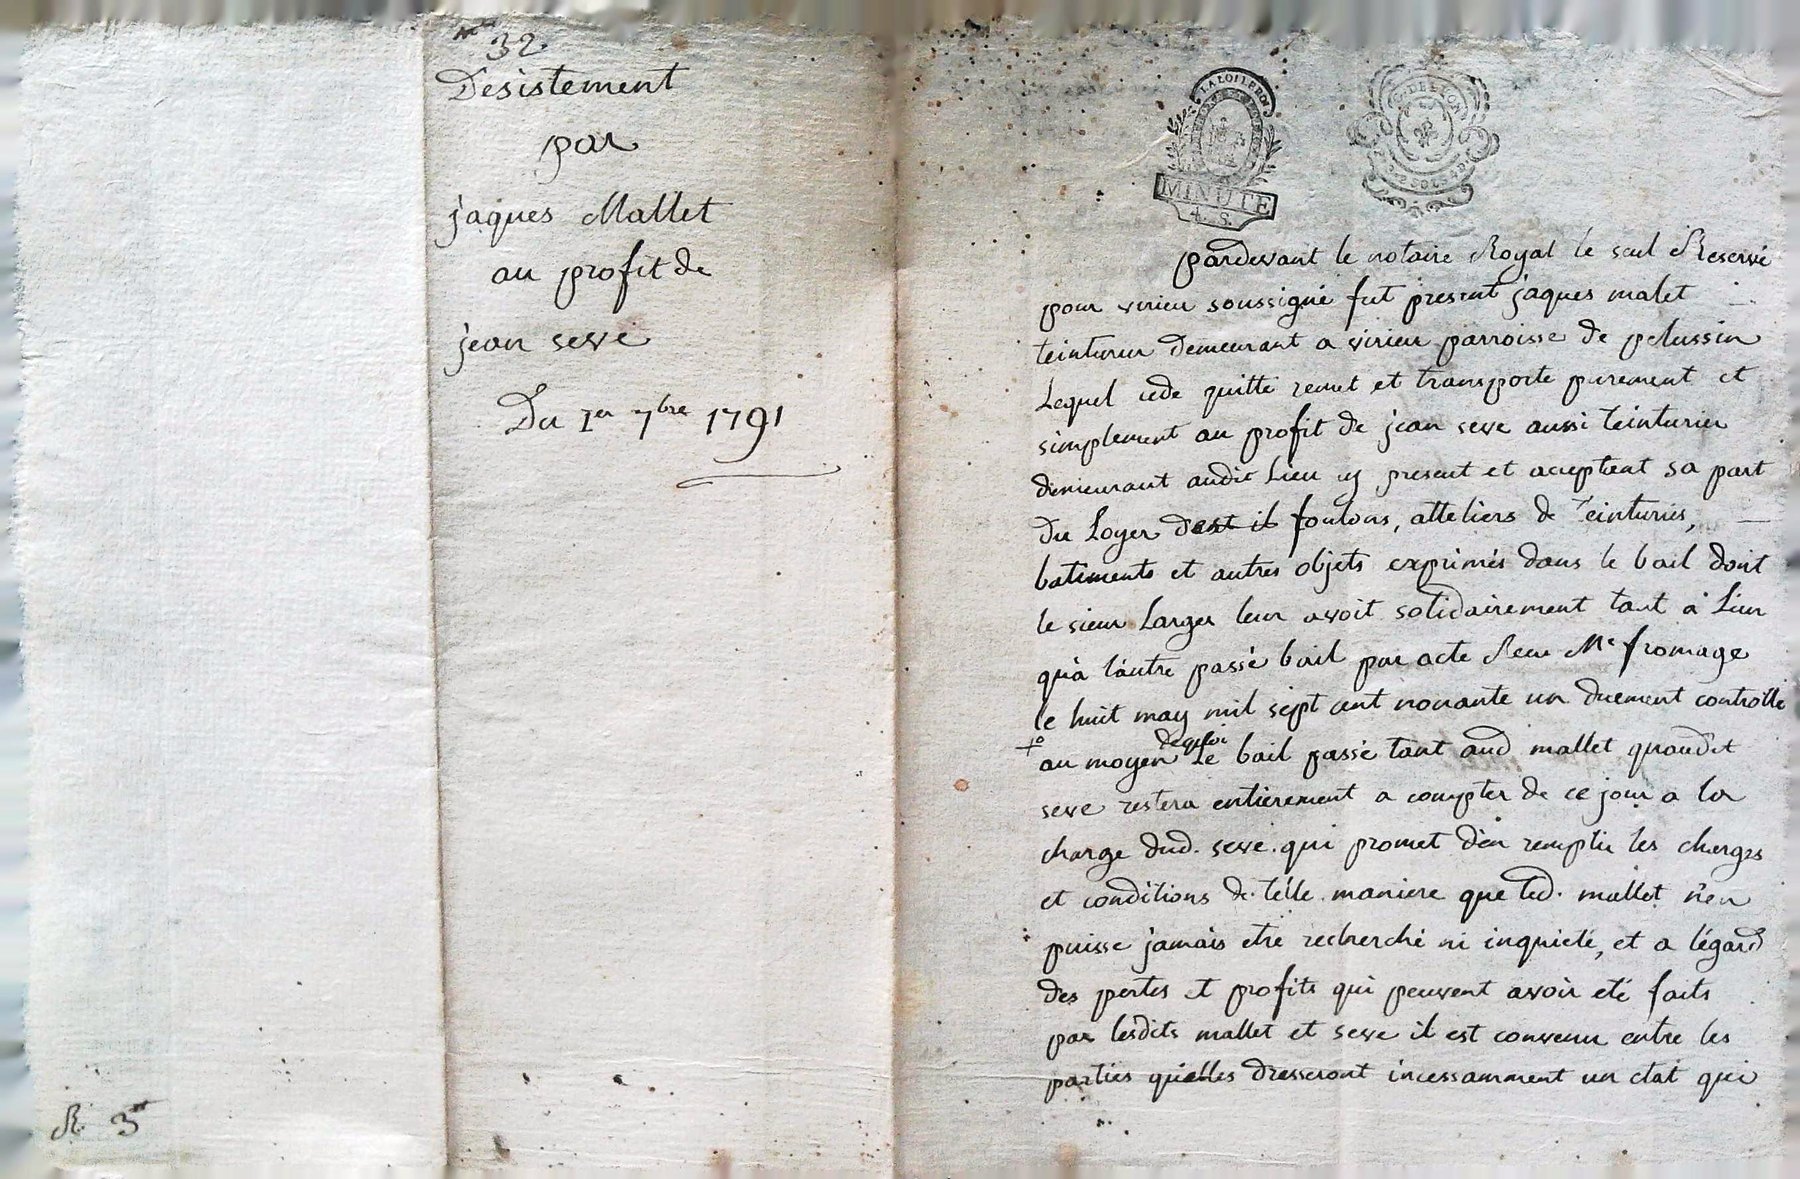 N° 32
Desistement
par
jaques Mallet
au profit de
jean seve
Du 1er 7bre 1791
R. 3tt
LA LOI LE ROI
MINUTE
4. S.
G. DE LYON
SOLS 4 D
pardevant le notaire Royal le seul Reservé
pour virieu soussigné fut present jaques malet
teinturier demeurant a virieu parroisse de pelussin
Lequel cede quitte remet et transporte purement et
simplement au profit de jean seve aussi teinturier
demeurant audit Lieu cy present et aceptent sa part
du Loyer foulons, atteliers de teinturies,
batiments et autres objets exprimés dans le bail dont
le sieur Larger leur avoit solidairement tant à L'un
qu'a lautre passé bail par acte Recu Me fromage
le huit may mil sept cent nonante un duement controllé
au moyen de quoi Le bail passé tant aud mallet quaudit
seve restera entierement a compter de ce jour a la
charge dud. seve. qui promet d'en remplir les charges
et conditions de telle maniere que led. mallet n'en
puisse jamais etre recherché ni inquieté, et a légard
des pertes et profits qui peuvent avoir eté faits
par lesdits mallet et seve il est convenu entre les
parties quelles dresseront incessamment un etat qui